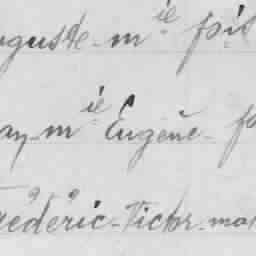 uguste - m ie
ay - m ie Eugène -
rédéric - Victor - mar